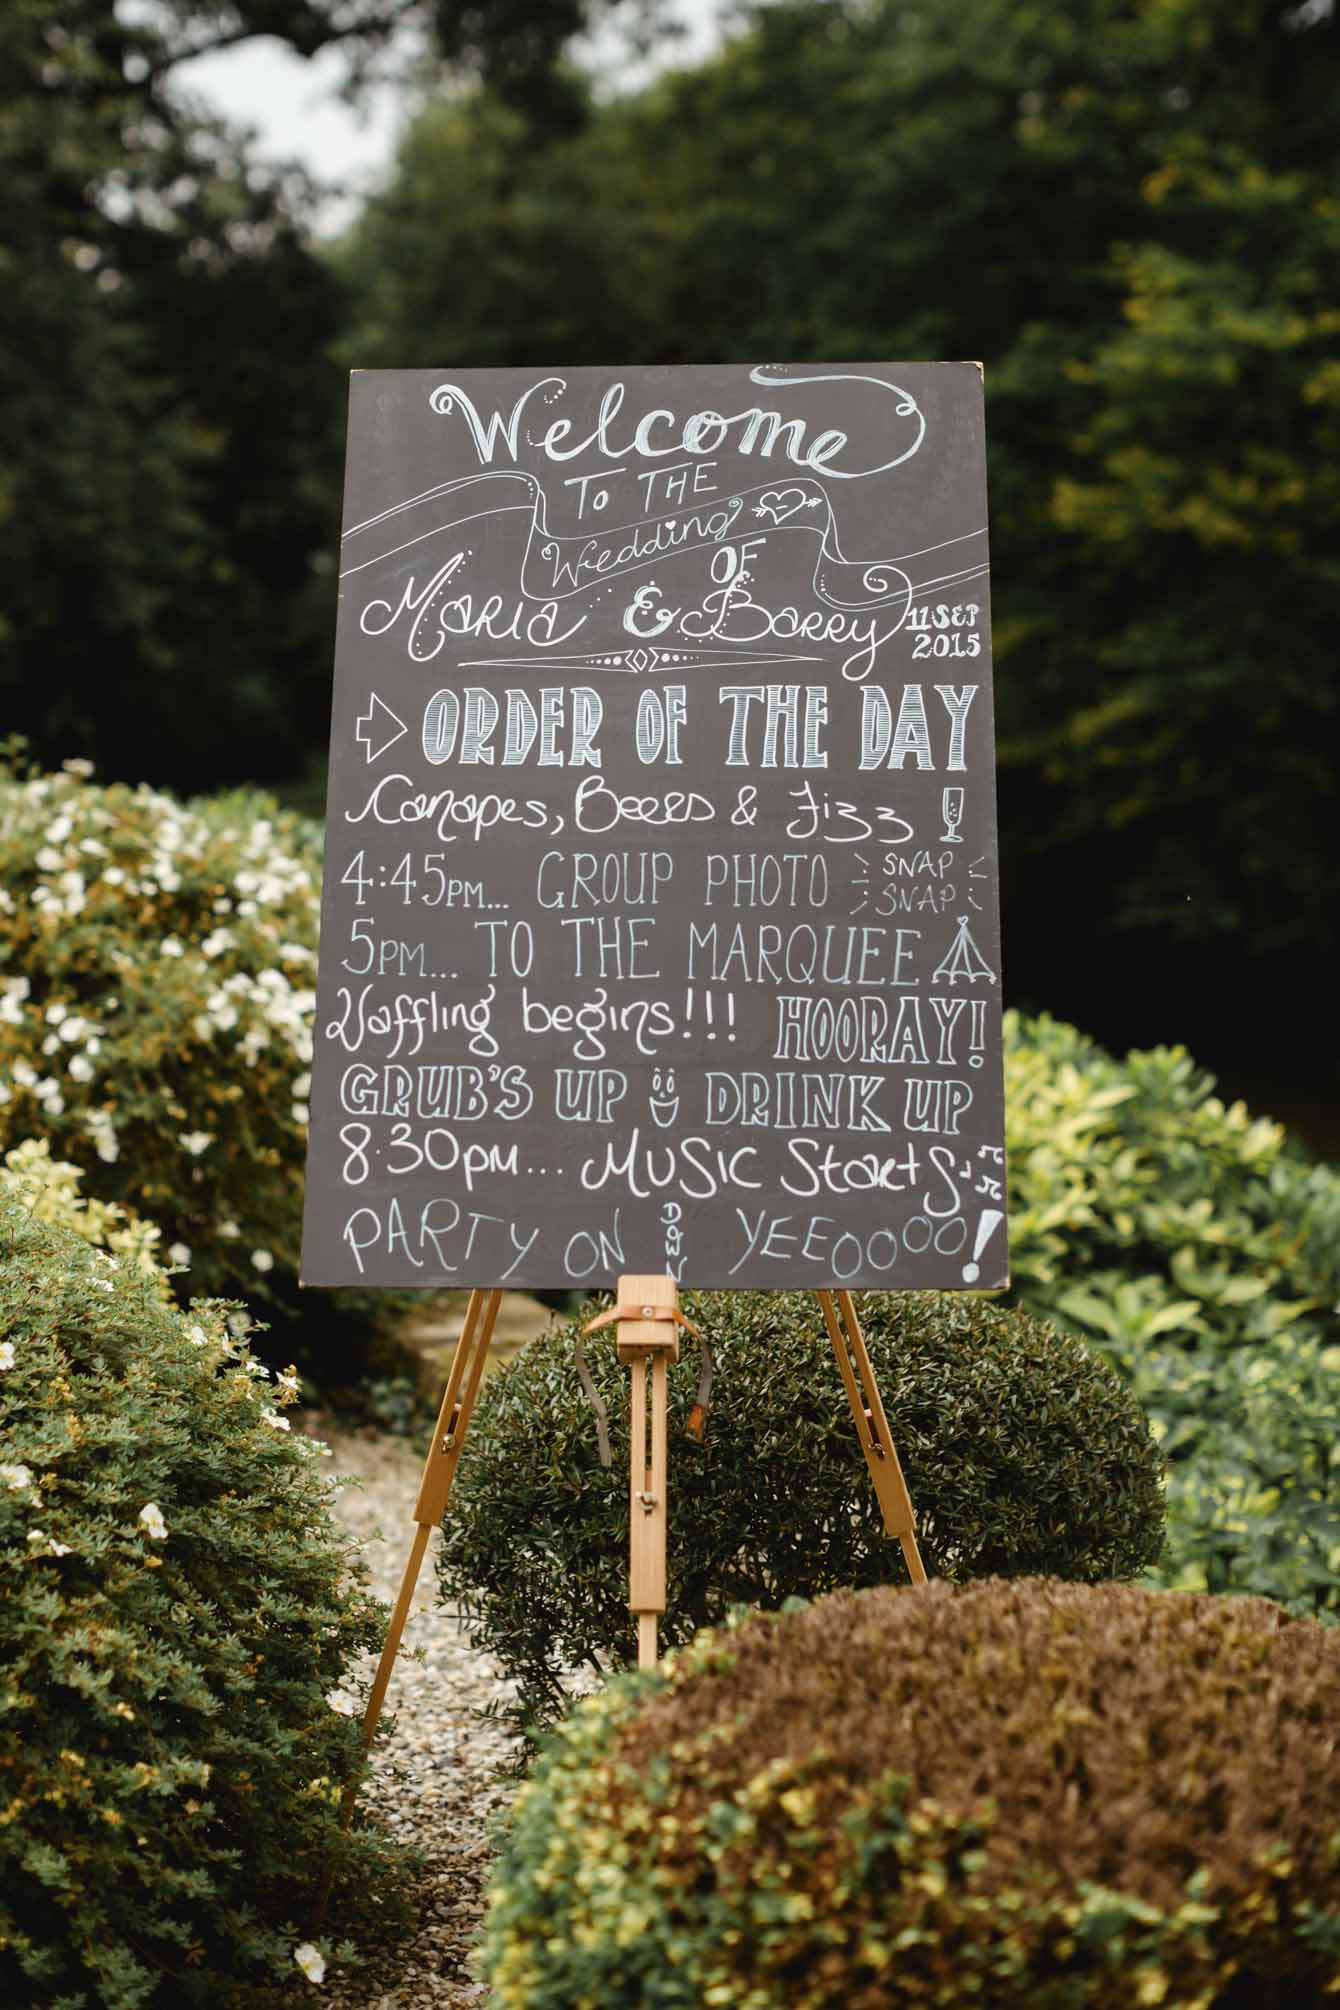 Welcome
TO THE
Wedding
OF
MARIA & Barry 11 SEP 2015
ORDER OF THE DAY
Canapes, Beers & Fizz
4:45PM... GROUP PHOTO SNAP SNAP
5PM... TO THE MARQUEE
Waffling begins!!! HOORAY!
GRUB'S UP DRINK UP
8.30pm... MUSIC StartS
PARTY ON DOWN YEEOOOO!